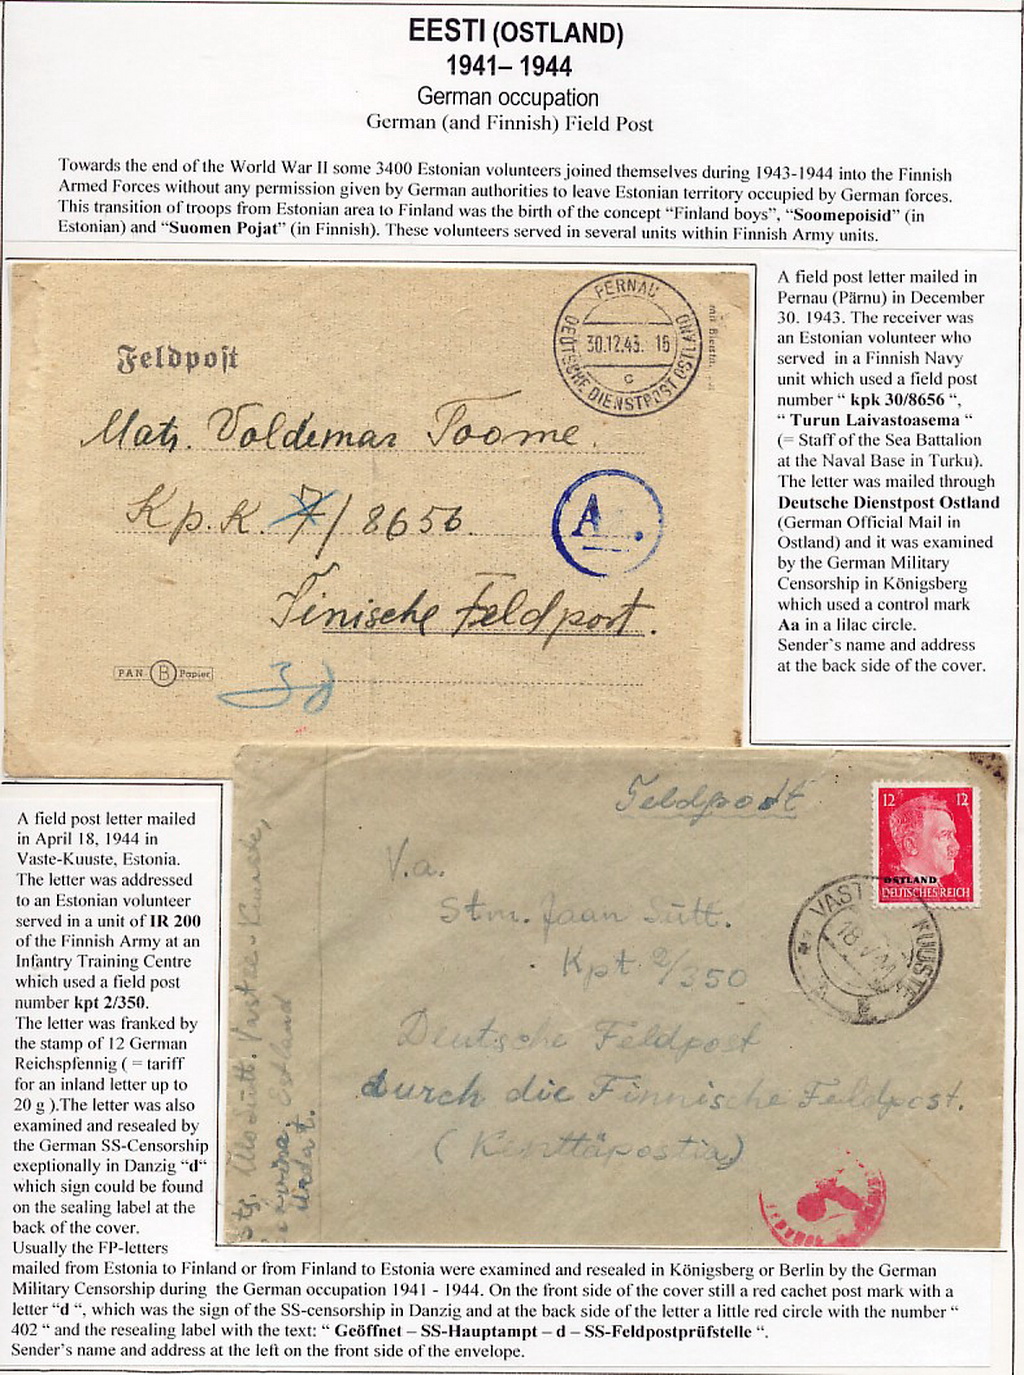 EESTI (OSTLAND)
1941– 1944
German occupation
German (and Finnish) Field Post
Towards the end of the World War II some 3400 Estonian volunteers joined themselves during 1943-1944 into the Finnish
Armed Forces without any permission given by German authorities to leave Estonian territory occupied by German forces.
This transition of troops from Estonian area to Finland was the birth of the concept “Finland boys”, “Soomepoisid” (in
Estonian) and “Suomen Pojat” (in Finnish). These volunteers served in several units within Finnish Army units.
PERNAU
30.12.43. 16
c
DEUTSCHE DIENSTPOST OSTLAND
Feldpost
Matr. Voldemar Toome.
Kp.K. 7/8656.
A.
Finische Feldport.
PAN B Papier
A field post letter mailed in
Pernau (Pärnu) in December
30. 1943. The receiver was
an Estonian volunteer who
served in a Finnish Navy
unit which used a field post
number “ kpk 30/8656 “,
“ Turun Laivastoasema “
(= Staff of the Sea Battalion
at the Naval Base in Turku).
The letter was mailed through
Deutsche Dienstpost Ostland
(German Official Mail in
Ostland) and it was examined
by the German Military
Censorship in Königsberg
which used a control mark
Aa in a lilac circle.
Sender’s name and address
at the back side of the cover.
A field post letter mailed
in April 18, 1944 in
Vaste-Kuuste, Estonia.
The letter was addressed
to an Estonian volunteer
served in a unit of IR 200
of the Finnish Army at an
Infantry Training Centre
which used a field post
number kpt 2/350.
The letter was franked by
the stamp of 12 German
Reichspfennig ( = tariff
for an inland letter up to
20 g ).The letter was also
examined and resealed by
the German SS-Censorship
exeptionally in Danzig “d“
which sign could be found
on the sealing label at the
back of the cover.
Usually the FP-letters
mailed from Estonia to Finland or from Finland to Estonia were examined and resealed in Königsberg or Berlin by the German
Military Censorship during the German occupation 1941 - 1944. On the front side of the cover still a red cachet post mark with a
letter “d “, which was the sign of the SS-censorship in Danzig and at the back side of the letter a little red circle with the number “
402 “ and the resealing label with the text: “ Geöffnet – SS-Hauptampt – d – SS-Feldpostprüfstelle “.
Sender’s name and address at the left on the front side of the envelope.
Feldpost
12 12
OSTLAND
DEUTSCHES REICH
VAST KUUSTE
18
V.a.
Stm. Jaan Sütt.
Kpt 2/350
Deutsche Feldpost
durch die Finnische Feldpost.
(Kenttäpostia)
Estland